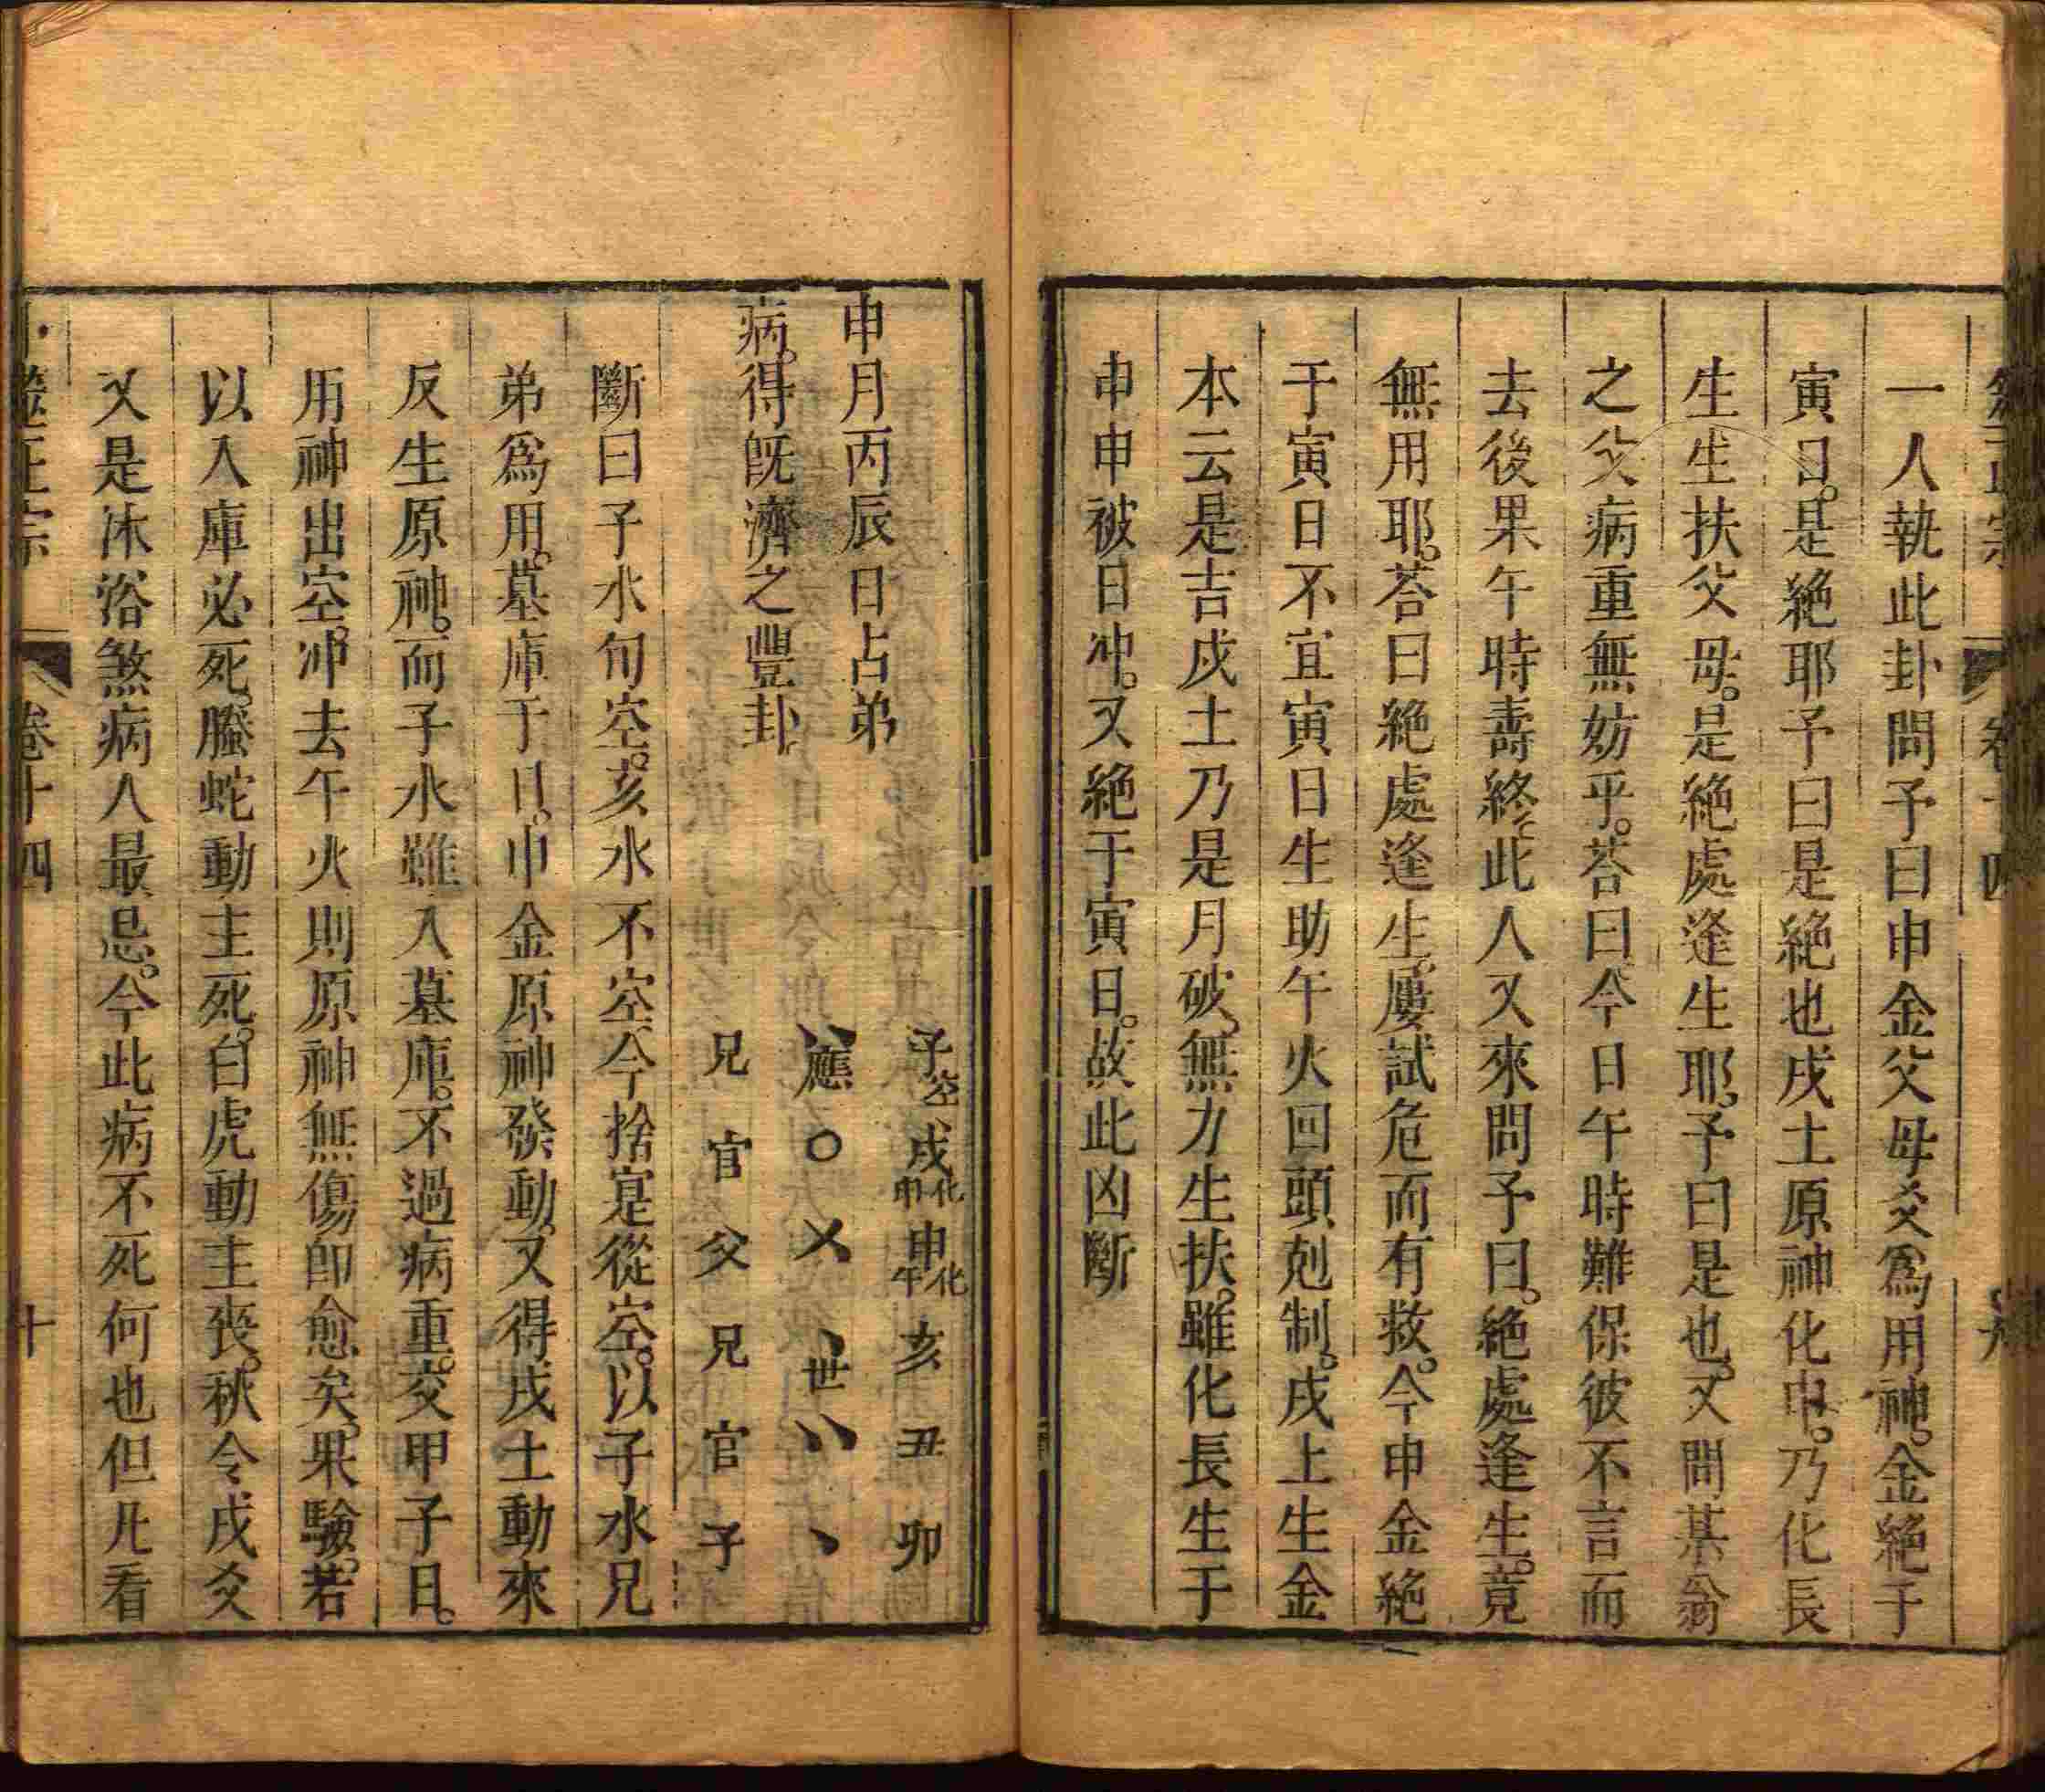 卜筮正宗 卷十四 九
一人執此卦問予曰申金父母爻爲用神。金絶于
寅日。是絶耶予曰是絶也戌土原神化申。乃化長
生生扶父母。是絶處逢生耶。予曰是也。又問某翁
之父病重無妨乎。荅曰今日午時難保彼不言而
去後果午時壽終。此人又來問予曰。絶處逢生。竟
無用耶。荅曰絶處逢生。屢試危而有救。今申金絶
于寅日不宜寅日生助午火回頭剋制。戌土生金
本云是吉戌土乃是月破。無力生扶。雖化長生于
申申被日冲。又絶于寅日。故此凶斷
申月丙辰日占弟
病。得旣濟之豐卦
子空 戌化申 申化午 亥 丑 卯
〃應 〇 乂 、世 〃 、
兄 官 父 兄 官 子
斷曰子水旬空。亥水不空今捨寔從空。以子水兄
弟爲用。墓庫于日。申金原神發動。又得戌土動來
反生原神。而子水雖入墓庫。不過病重。交甲子日。
用神出空。冲去午火則原神無傷卽愈矣。果驗。若
以入庫必死。螣蛇動主死。白虎動主喪。秋令戌爻
又是沐浴煞病人最忌。今此病不死何也但凡看
卜筮正宗 卷十四 十